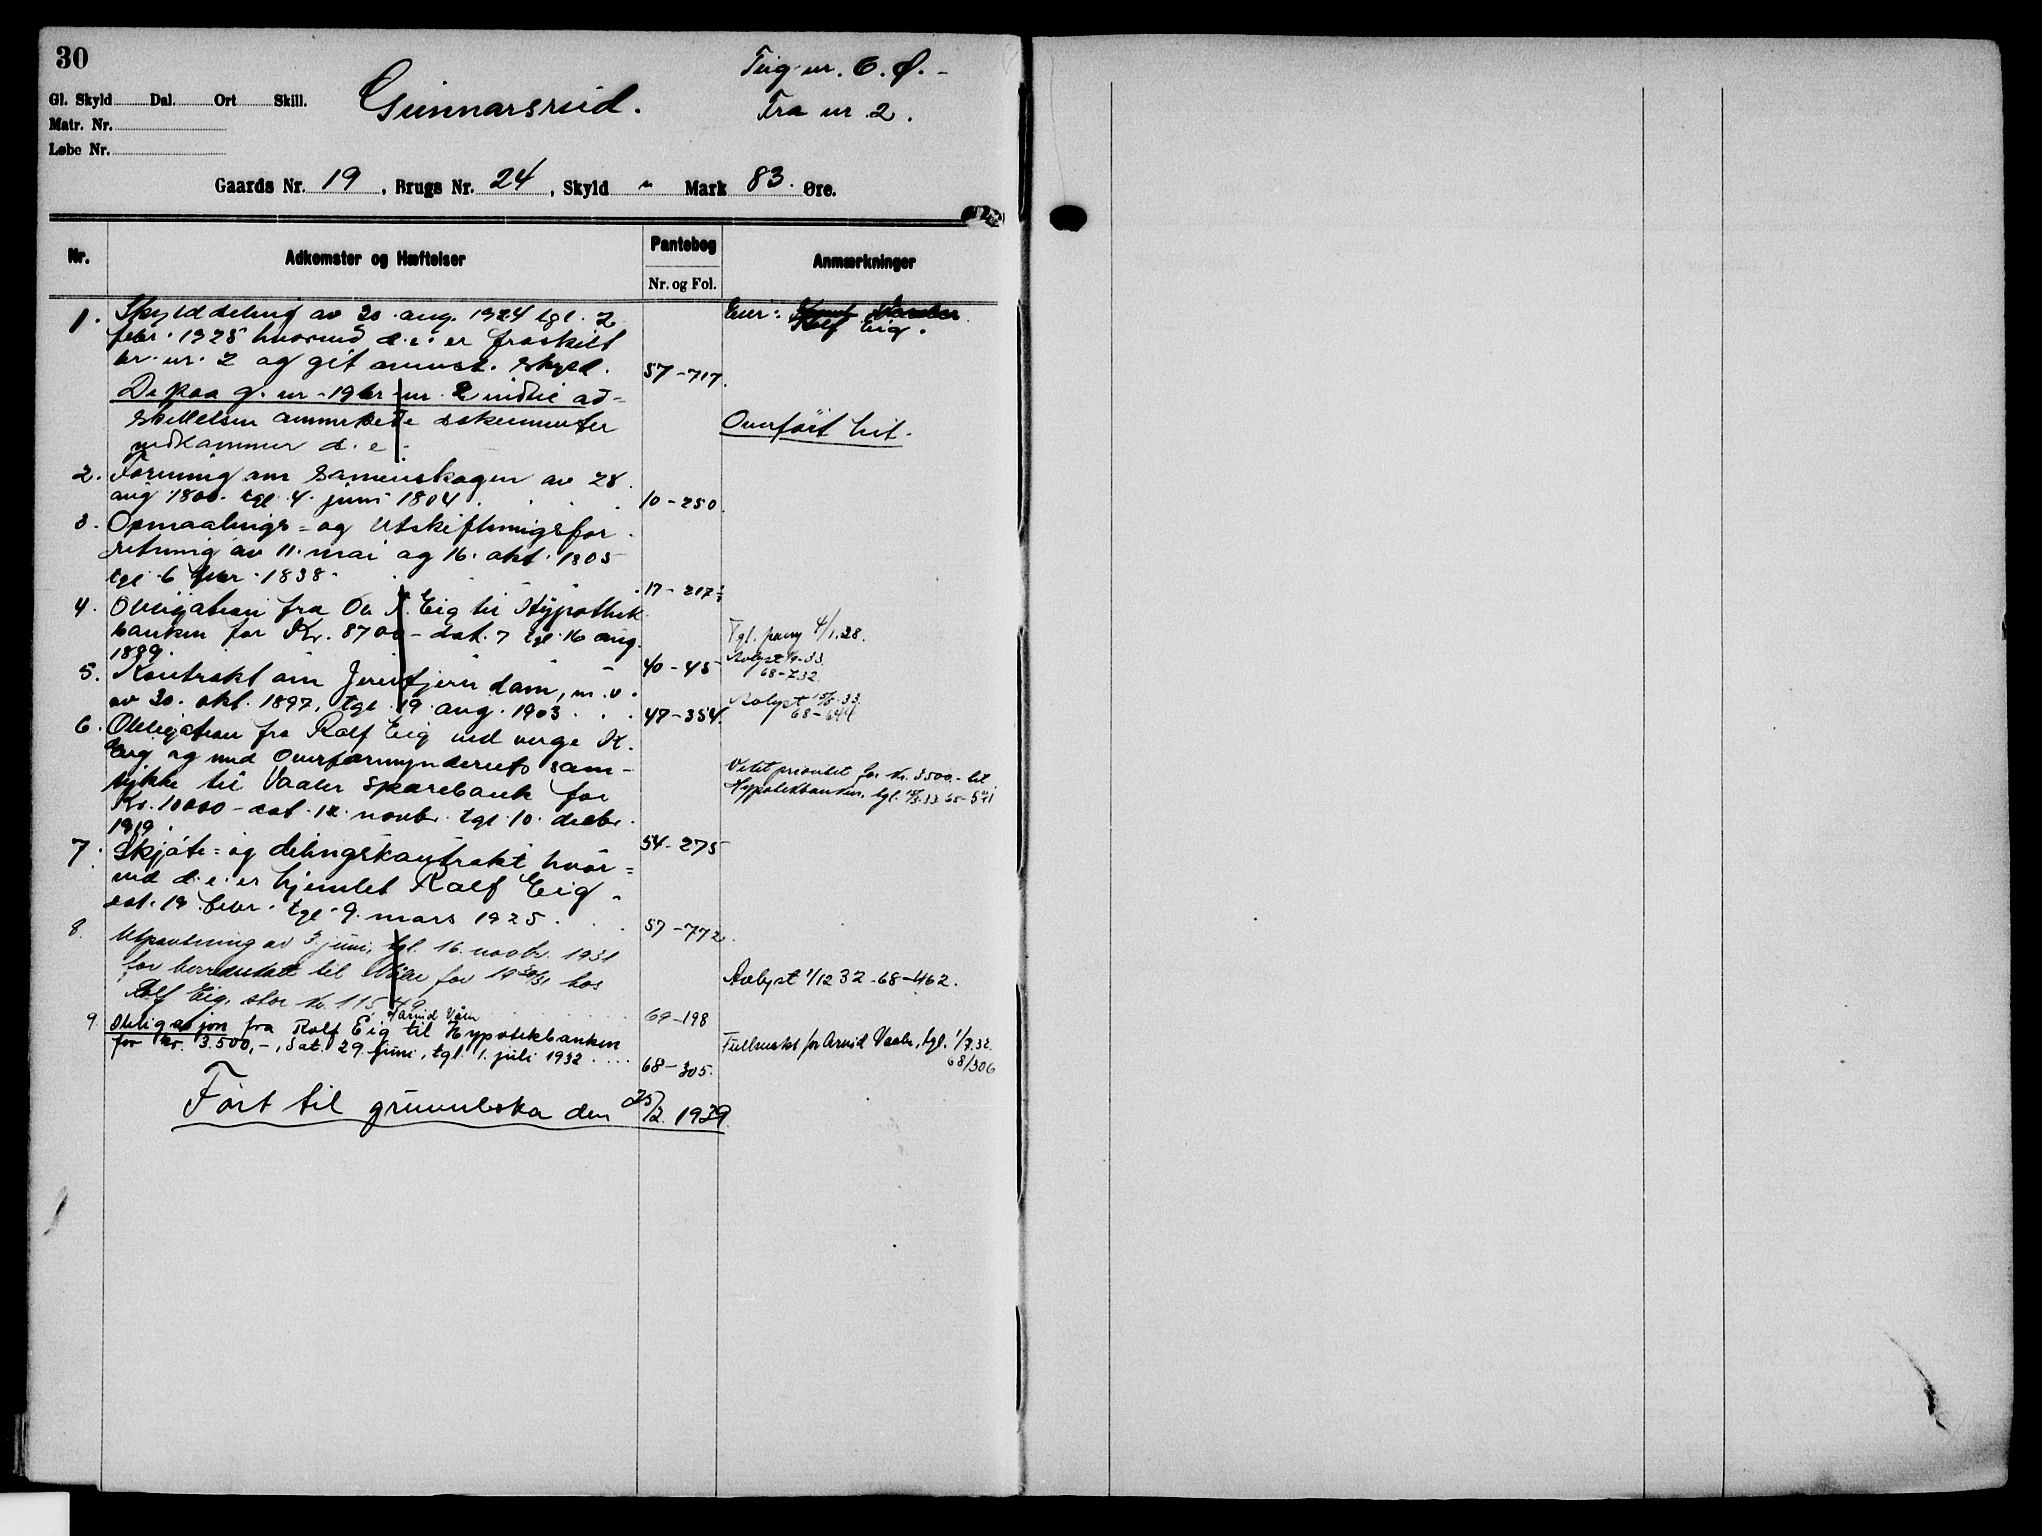 30
Gl. Skyld Dal. Ort Skill.
Matr. Nr.
Løbe Nr.
Gunnarsrud.
Teig nr. 6. Ø. -
Fra nr 2.
Gaards Nr. 19, Brugs Nr. 24, Skyld " Mark 83. Øre.
Nr. Adkomster og Hæftelser Pantebog Nr. og Fol. Anmærkninger
1. Skylddeling av 20. aug. 1924 tgl. 2 Eier:
febr. 1925 hvorved d. e. er fraskilt Rolf Eig.
br. nr. 2 og git anmst. skyld. 57-717.
De paa g. nr. 19 br. nr. 2 indtil ad-
skillelsen anmerkede dokumenter Overført hit.
vedkommer d. e.:
2. Forening om Sameieskogen av 28.
aug. 1800. tgl. 4. juni 1804. 10-250.
3. Opmaalings- og Utskiftningsfor-
retning av 11. mai og 16. okt. 1805
tgl. 6 febr. 1838. 17-217½
4. Obligation fra Ole N. Eig til Hypothek
banken for Kr. 8700 - dat. 7 tgl. 16 aug. Tgl. paany 4/1.28.
1899. 40-45 Avlyst 33. 68-732.
5. Kontrakt om tjern dam, m. v.
av 30. okt. 1897, tgl. 19. aug. 1903. 47-354. Avlyst 33. 68-644
6. Obligation fra Rolf Eig ved verge K.
Eig og med Overformynderiets sam-
tykke til Vaaler Sparebank for Vetet prioritet for kr. 3500.- til
Kr. 10000 - dat. 12. novbr. tgl. 10. decbr. Hypotekbanken, tgl. 33 68-571
1919. 54-275
7. Skjøte- og delingskontrakt, hvor-
ved d. e. er hjemlet Rolf Eig.
dat. 19. febr. tgl. 9. mars 1925. 57-772.
8. Utpantning av 3 juni, tgl. 16. novbr. 1931
for herredskatt til Våler for 1930/31 hos Avlyst 1/12 32 - 68-462.
Rolf Eig, stor kr 115,49 67-198
Arvid Våler
9. Obligasjon fra Rolf Eig til Hypotekbanken
for kr. 3.500,-, dat. 29. juni, tgl. 1. juli 1932 68-305. Fullmakt for Arvid Vaaler, tgl. 1/7.32.
68/306
Ført til grunnboka den 25/2. 1939.